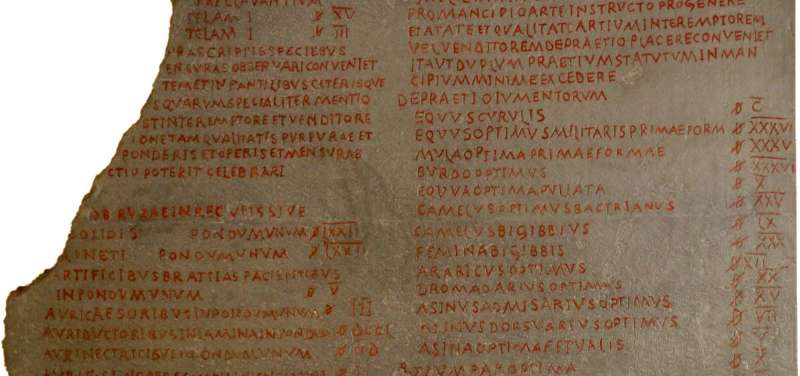 TELAM I XV
TELAM I III
PRASCRIPTIS SPECIEBUS
ENSURAS OBSERVARI CONVENIET
TEMET IN PANTILIBUS CETERISQUE
SQUARUM SPECIALITER MENTIO
STINTER EMPTORE ET VENDITORE
IONE TAM QUALITATIS PURPURAE ET
PONDERIS ET OPERIS ET MENSURAE
CTIO POTERIT CELEBRARI
OBRUZAE IN SIVE
OLIDIS PONDUM UNUM LXXII
INETI PONDUM UNUM LXXII
ARTIFICIBUS BRATTIAS FACIENTIBUS
IN PONDUM UNUM V
AURICAESORIBUS IN PONDUM UNUM III
AURIDUCTORIBUS IN LAMINA IN PONDUM
AURINECTRICIBUS IN PONDUM UNUM
PRO MANCIPIO ARTE INSTRUCTO PRO GENERE
ET AETATE ET QUALITATE ARTIUM INTER EMPTOREM
VEL VENDITOREM DE PRAETIO PLACERE CONVENIET
ITA UT DUPLUM PRAETIUM STATUTUM IN MAN
CIPIUM MINIME EXCEDERE
DE PRAETIO IUMENTORUM
EQUUS CURULIS C
EQUUS OPTIMUS MILITARIS PRIMAE FORM XXXVI
MULA OPTIMA PRIMAE FORMAE XXXVI
BURDO OPTIMUS
EQUA OPTIMA PULIATA X
CAMELUS OPTIMUS BACTRIANUS
CAMELUS BIGIBBIUS LX
FEMINA BIGIBBIS XXX
ARABICUS OPTIMUS XII
DROMADARIUS OPTIMUS XX
ASINUS ADMISARIUS OPTIMUS XV
ASINUS DORSUARIUS OPTIMUS VII
ASINA OPTIMA FETUALIS V
UM PAR OPTIMA